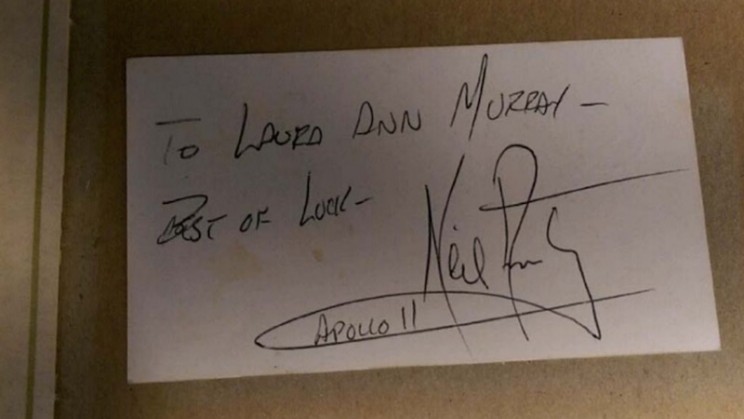 To LAURA ANN MURRAY –
BEST OF LUCK –
Neil Armstrong
APOLLO 11